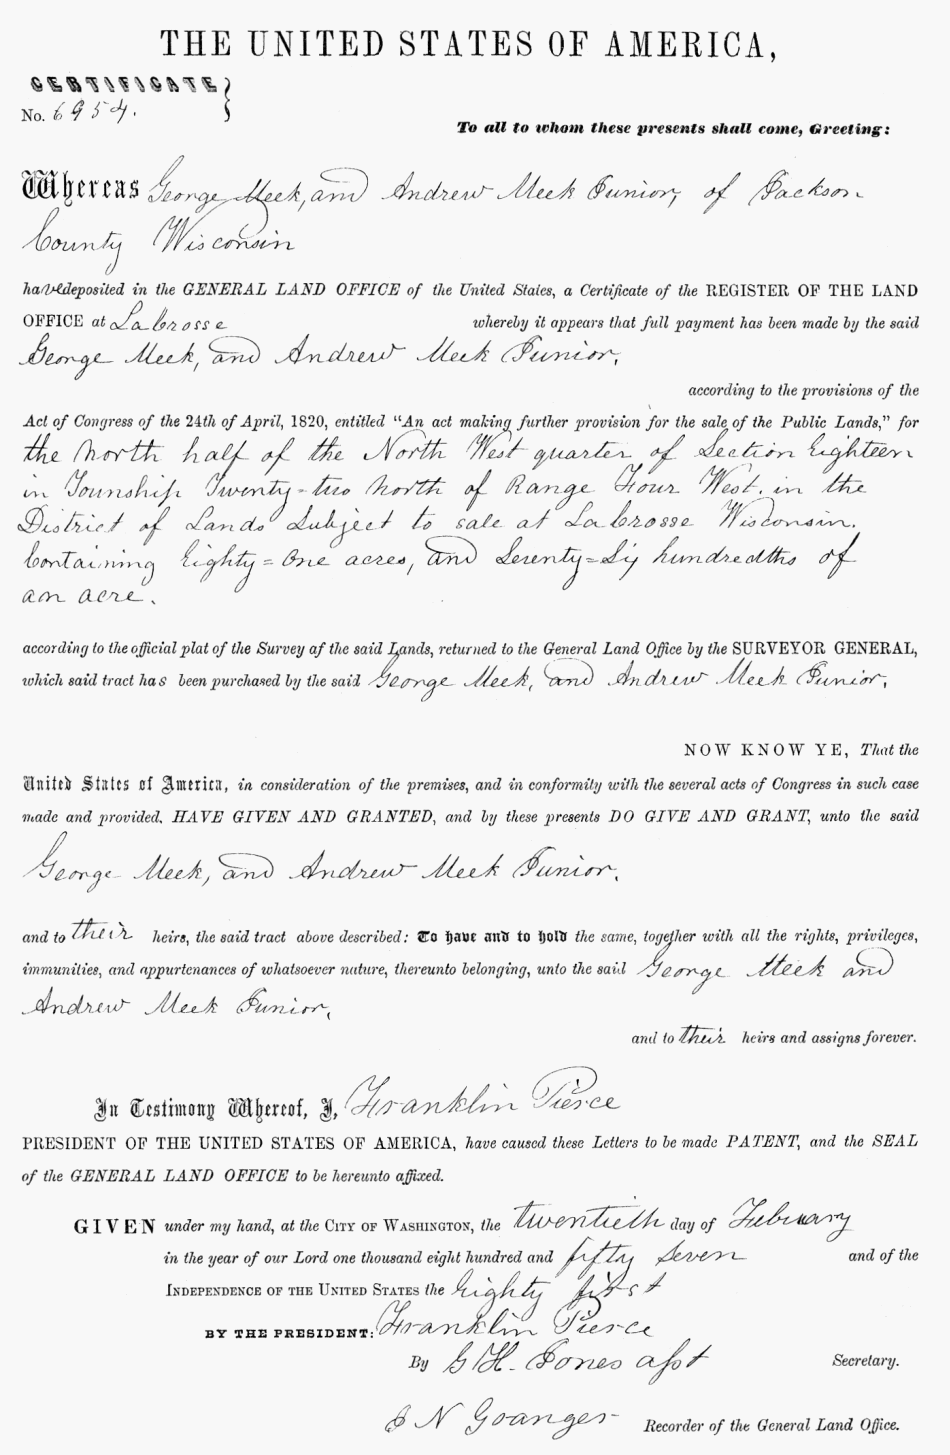 THE UNITED STATES OF AMERICA,
CERTIFICATE
No. 6954.
To all to whom these presents shall come, Greeting:
Whereas George Meek, and Andrew Meek Junior, of Jackson
County Wisconsin
have deposited in the GENERAL LAND OFFICE of the United States, a Certificate of the REGISTER OF THE LAND
OFFICE at La Crosse whereby it appears that full payment has been made by the said
George Meek, and Andrew Meek Junior,
according to the provisions of the
Act of Congress of the 24th of April, 1820, entitled "An act making further provision for the sale of the Public Lands," for
the North half of the North West quarter of Section Eighteen
in Township Twenty-two North of Range Four West. in the
District of Lands Subject to sale at La Crosse Wisconsin.
Containing Eighty=One acres, and Seventy=Six hundredths of
an acre.
according to the official plat of the Survey af the said Lands, returned to the General Land Office by the SURVEYOR GENERAL,
which said tract has been purchased by the said George Meek, and Andrew Meek Junior,
NOW KNOW YE, That the
United States of America, in consideration of the premises, and in conformity with the several acts of Congress in such case
made and provided, HAVE GIVEN AND GRANTED, and by these presents DO GIVE AND GRANT, unto the said
George Meek, and Andrew Meek Junior,
and to their heirs, the said tract above described: To have and to hold the same, together with all the rights, privileges,
immunities, and appurtenances of whatsoever nature, thereunto belonging, unto the said George Meek and
Andrew Meek Junior,
and to their heirs and assigns forever.
In Testimony Whereof, I, Franklin Pierce
PRESIDENT OF THE UNITED STATES OF AMERICA, have caused these Letters to be made PATENT, and the SEAL
of the GENERAL LAND OFFICE to be hereunto affixed.
GIVEN under my hand, at the CITY OF WASHINGTON, the twentieth day of February
in the year of our Lord one thousand eight hundred and fifty seven and of the
INDEPENDENCE OF THE UNITED STATES the Eighty first
BY THE PRESIDENT: Franklin Pierce
By G H. Jones asst Secretary.
J N Granger Recorder of the General Land Office.